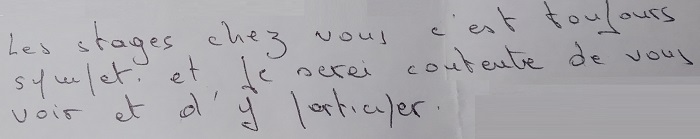 Les stages chez vous c'est toujours
et je serei contente de vous
voir et d'y participer.